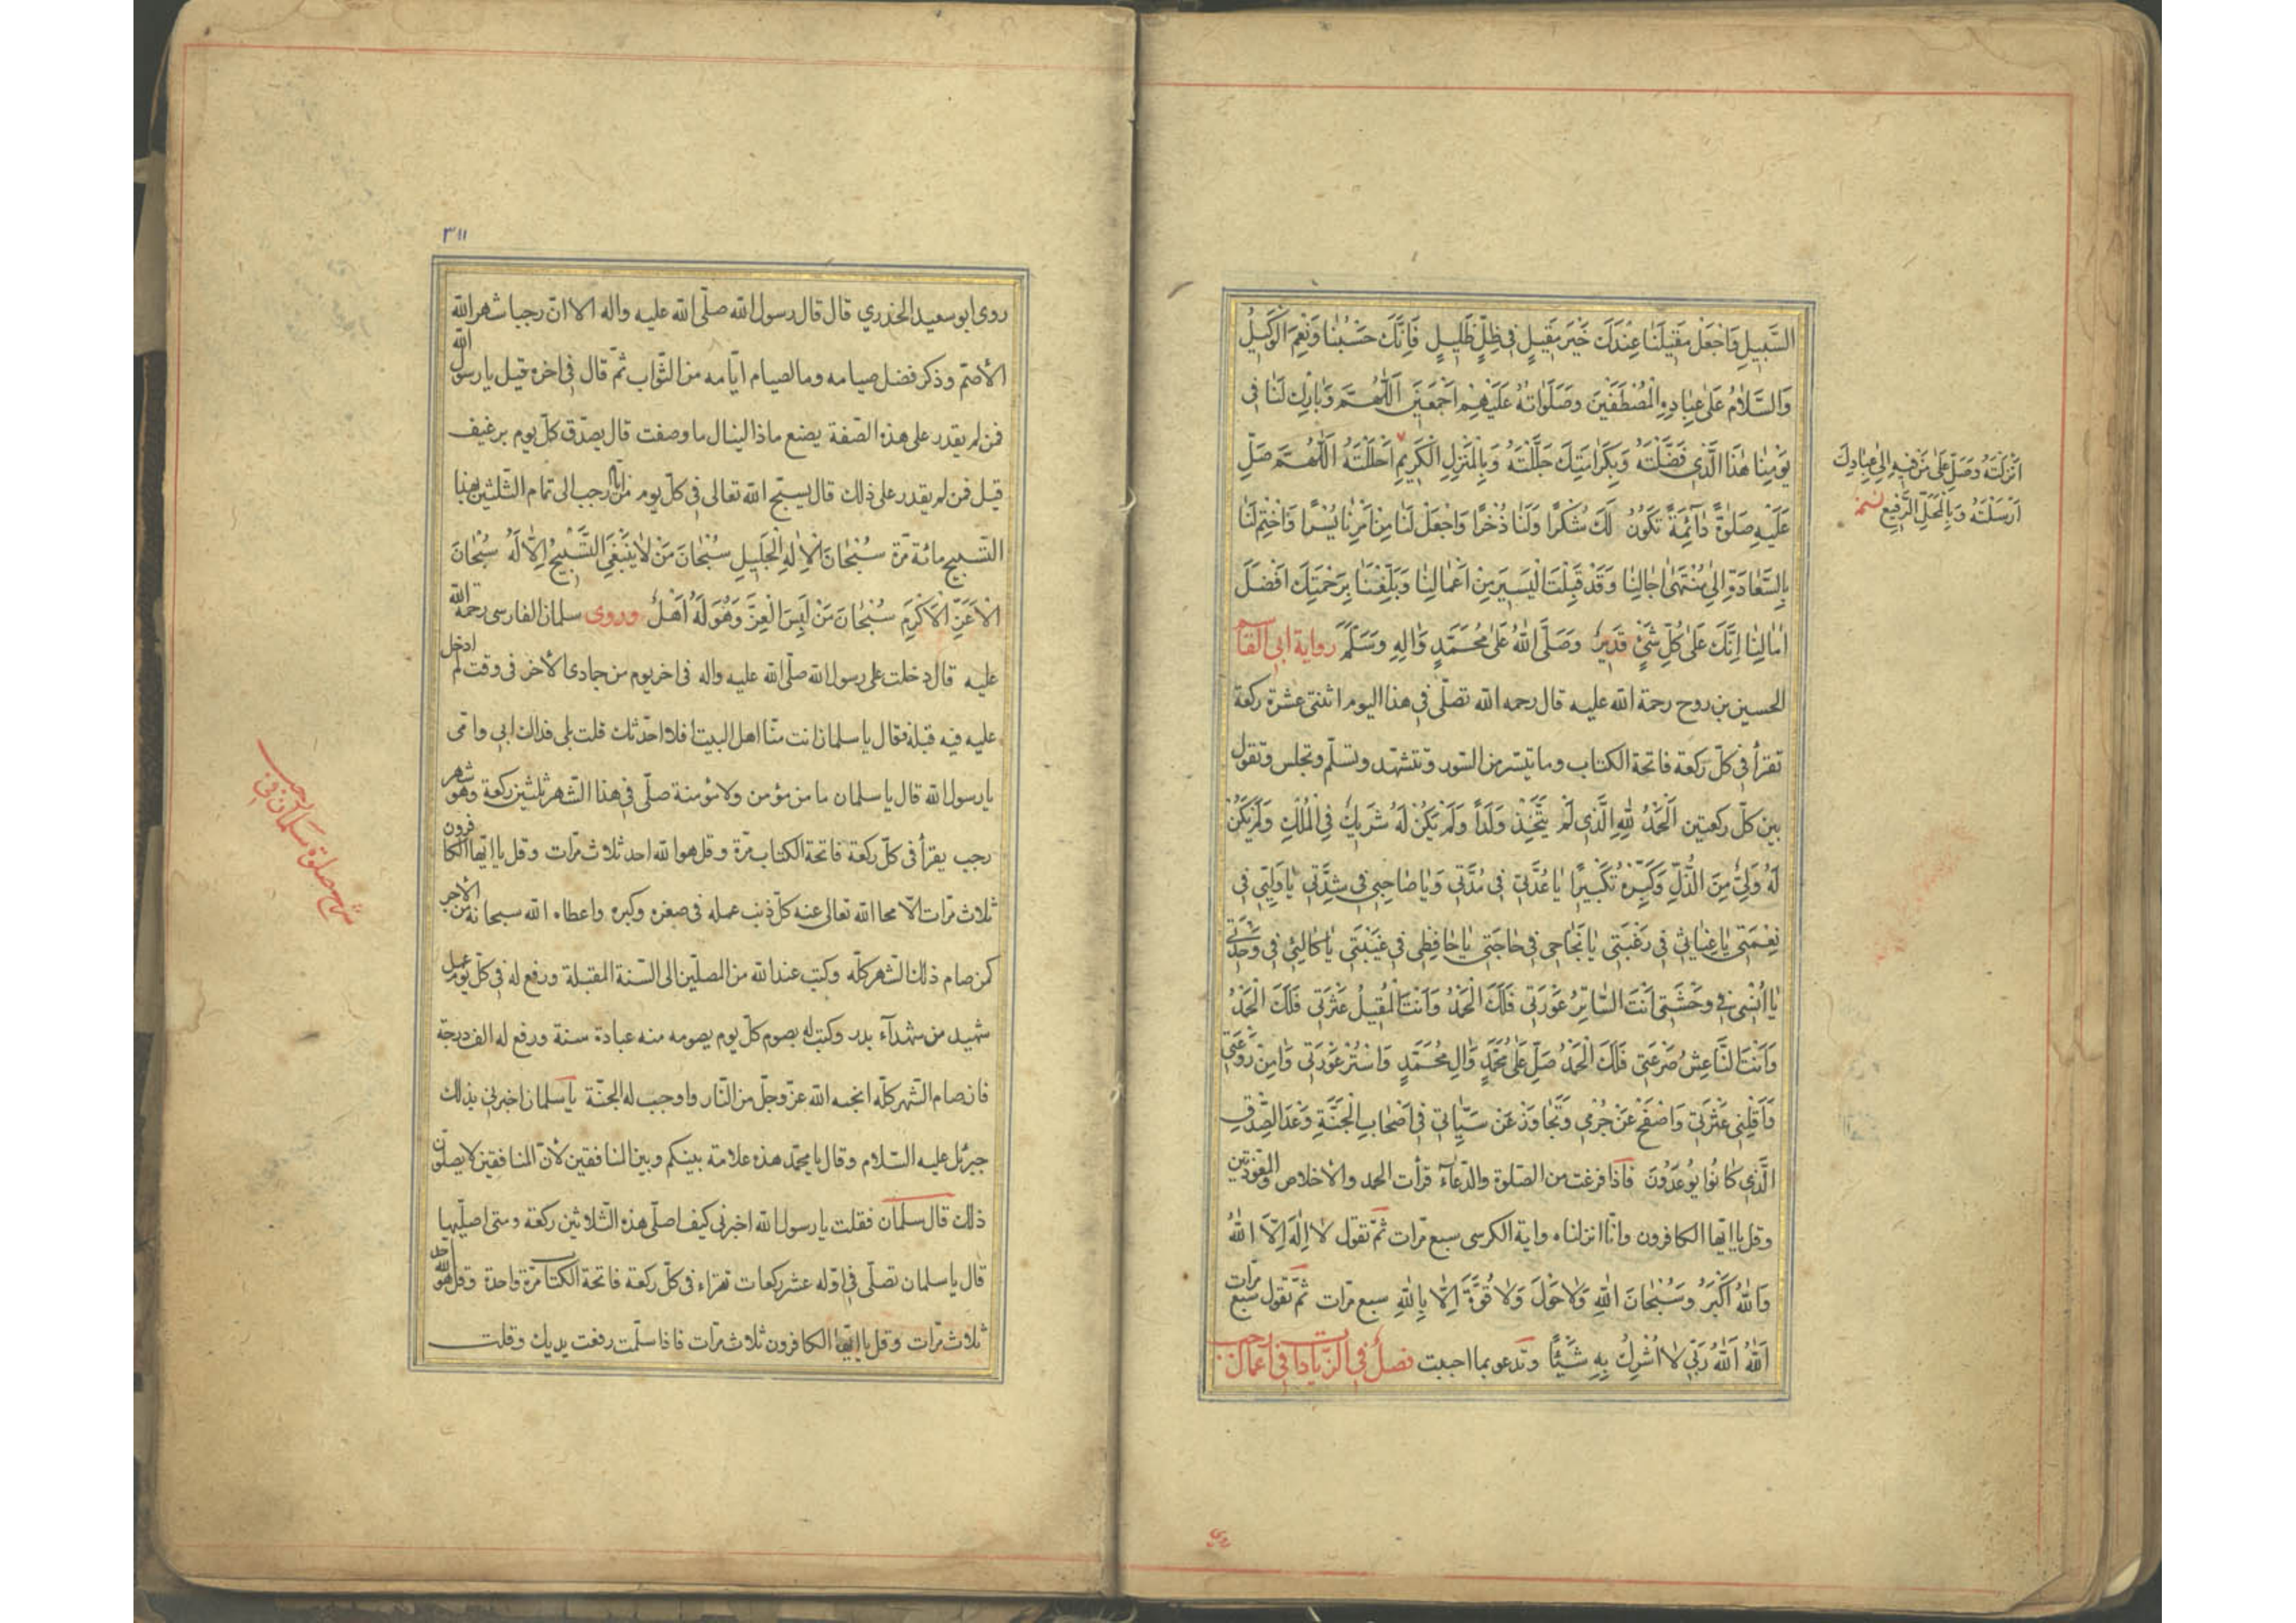 السَّبِيلِ وَاجْعَلْ مَقِيلَنَا عِنْدَكَ خَيْرَ مَقِيلٍ فِي ظِلٍّ ظَلِيلٍ فَإِنَّكَ حَسْبُنَا وَنِعْمَ الْوَكِيلُ
وَالسَّلَامُ عَلَى عِبَادِهِ الْمُصْطَفَيْنَ وَصَلَوَاتُهُ عَلَيْهِمْ أَجْمَعِينَ اَللّٰهُمَّ وَبَارِكْ لَنَا فِي
يَوْمِنَا هٰذَا الَّذِي فَضَّلْتَهُ وَبِكَرَامَتِكَ جَلَّلْتَهُ وَبِالْمَنْزِلِ الْكَرِيمِ أَحْلَلْتَهُ اَللّٰهُمَّ صَلِّ
عَلَيْهِ صَلٰوةً دَائِمَةً تَكُونُ لَكَ شُكْرًا وَلَنَا ذُخْرًا وَاجْعَلْ لَنَا مِنْ اَمْرِنَا يُسْرًا وَاخْتِمْ لَنَا
بِالسَّعَادَةِ اِلىٰ مُنْتَهىٰ اٰجَالِنَا وَقَدْ قَبِلْتَ الْيَسِيرَ مِنْ اَعْمَالِنَا وَبَلِّغْنَا بِرَحْمَتِكَ اَفْضَلَ
اٰمَالِنَا اِنَّكَ عَلىٰ كُلِّ شَيْءٍ قَدِيرٌ وَصَلَّى اللهُ عَلىٰ مُحَمَّدٍ وَاٰلِهِ وَسَلَّمَ رواية ابي القاسم
الحسين بن روح رحمة الله عليه قال رحمه الله تصلّي في هذا اليوم اثنتي عشرة ركعة
تقرأ في كلّ ركعة فاتحة الكتاب وما تيسّر من السّور وتتشهّد وتسلّم وتجلس وتقول
بين كلّ ركعتين اَلْحَمْدُ لِلّٰهِ الَّذِي لَمْ يَتَّخِذْ وَلَدًا وَلَمْ يَكُنْ لَهُ شَرِيكٌ فِي الْمُلْكِ وَلَمْ يَكُنْ
لَهُ وَلِيٌّ مِنَ الذُّلِّ وَكَبِّرْهُ تَكْبِيرًا يَا عُدَّتِي فِي مُدَّتِي وَيَا صَاحِبِي فِي شِدَّتِي يَا وَلِيِّي فِي
نِعْمَتِي يَا غِيَاثِي فِي رَغْبَتِي يَا نَجَاحِي فِي حَاجَتِي يَا حَافِظِي فِي غَيْبَتِي يَا كَالِئِي فِي وَحْدَتِي
يَا اُنْسِي فِي وَحْشَتِي اَنْتَ السَّاتِرُ عَوْرَتِي فَلَكَ الْحَمْدُ وَاَنْتَ الْمُقِيلُ عَثْرَتِي فَلَكَ الْحَمْدُ
وَاَنْتَ النَّاعِشُ صَرْعَتِي فَلَكَ الْحَمْدُ صَلِّ عَلىٰ مُحَمَّدٍ وَاٰلِ مُحَمَّدٍ وَاسْتُرْ عَوْرَتِي وَاٰمِنْ رَوْعَتِي
وَاَقِلْنِي عَثْرَتِي وَاصْفَحْ عَنْ جُرْمِي وَتَجَاوَزْ عَنْ سَيِّئَاتِي فِي اَصْحَابِ الْجَنَّةِ وَعْدَ الصِّدْقِ
الَّذِي كَانُوا يُوعَدُونَ فاذا فرغت من الصلوة والدّعاء قرأت الحمد والاخلاص والمعوّذتين
وقل يا ايّها الكافرون وانّا انزلناه واية الكرسي سبع مرّات ثمّ تقول لَا اِلٰهَ اِلَّا اللهُ
وَاللهُ اَكْبَرُ وَسُبْحَانَ اللهِ وَلَا حَوْلَ وَلَا قُوَّةَ اِلَّا بِاللهِ سبع مرّات ثمّ تقول سبع مرّات
اَللهُ اَللهُ رَبِّي لَا اُشْرِكُ بِهِ شَيْئًا وتدعو بما احببت فصل في الزيادات في اعمال رجب
اَنْزَلْتَهُ وَصَلِّ عَلىٰ مَنْ فِيهِ اِلىٰ عِبَادِكَ
اَرْسَلْتَهُ وَبِالْمَحَلِّ الرَّفِيعِ نسخه
٣١١
روى ابو سعيد الخدري قال قال رسول الله صلّى الله عليه واله الا انّ رجبا شهر الله
الاصمّ وذكر فضل صيامه وما لصيام ايّامه من الثّواب ثمّ قال في اخره قيل يا رسول الله
فمن لم يقدر على هذه الصّفة يصنع ماذا لينال ما وصفت قال يصدّق كلّ يوم برغيف
قيل فمن لم يقدر على ذلك قال يسبّح الله تعالى في كلّ يوم من ايّام رجب الى تمام الثّلثين بهذا
التّسبيح مائة مرّة سُبْحَانَ الْاِلٰهِ الْجَلِيلِ سُبْحَانَ مَنْ لَا يَنْبَغِي التَّسْبِيحُ اِلَّا لَهُ سُبْحَانَ
الْاَعَزِّ الْاَكْرَمِ سُبْحَانَ مَنْ لَبِسَ الْعِزَّ وَهُوَ لَهُ اَهْلٌ وروى سلمان الفارسي رحمة الله
عليه قال دخلت على رسول الله صلّى الله عليه واله في اخر يوم من جمادى الاخر في وقت لم ادخل
عليه فيه قبله فقال يا سلمان انت منّا اهل البيت افلا احدّثك قلت بلى فداك ابي وامّي
يا رسول الله قال يا سلمان ما من مؤمن ولا مؤمنة صلّى في هذا الشّهر ثلثين ركعة وهو شهر
رجب يقرأ في كلّ ركعة فاتحة الكتاب مرّة وقل هو الله احد ثلاث مرّات وقل يا ايّها الكافرون
ثلاث مرّات الّا محا الله تعالى عنه كلّ ذنب عمله في صغره وكبره واعطاه الله سبحانه من الاجر
كمن صام ذلك الشّهر كلّه وكتب عند الله من المصلّين الى السّنة المقبلة ورفع له في كلّ يوم عمل
شهيد من شهداء بدر وكتب له بصوم كلّ يوم يصومه منه عبادة سنة ورفع له الف درجة
فان صام الشّهر كلّه انجاه الله عزّ وجلّ من النّار واوجب له الجنّة يا سلمان اخبرني بذلك
جبرئيل عليه السّلام وقال يا محمّد هذه علامة بينكم وبين المنافقين لانّ المنافقين لا يصلّون
ذلك قال سلمان فقلت يا رسول الله اخبرني كيف اصلّي هذه الثّلاثين ركعة ومتى اصلّيها
قال يا سلمان تصلّي في اوّله عشر ركعات تقراء في كلّ ركعة فاتحة الكتاب مرّة واحدة وقل هو الله احد
ثلاث مرّات وقل يا ايّها الكافرون ثلاث مرّات فاذا سلّمت رفعت يديك وقلت
صلوة سلمان في رجب